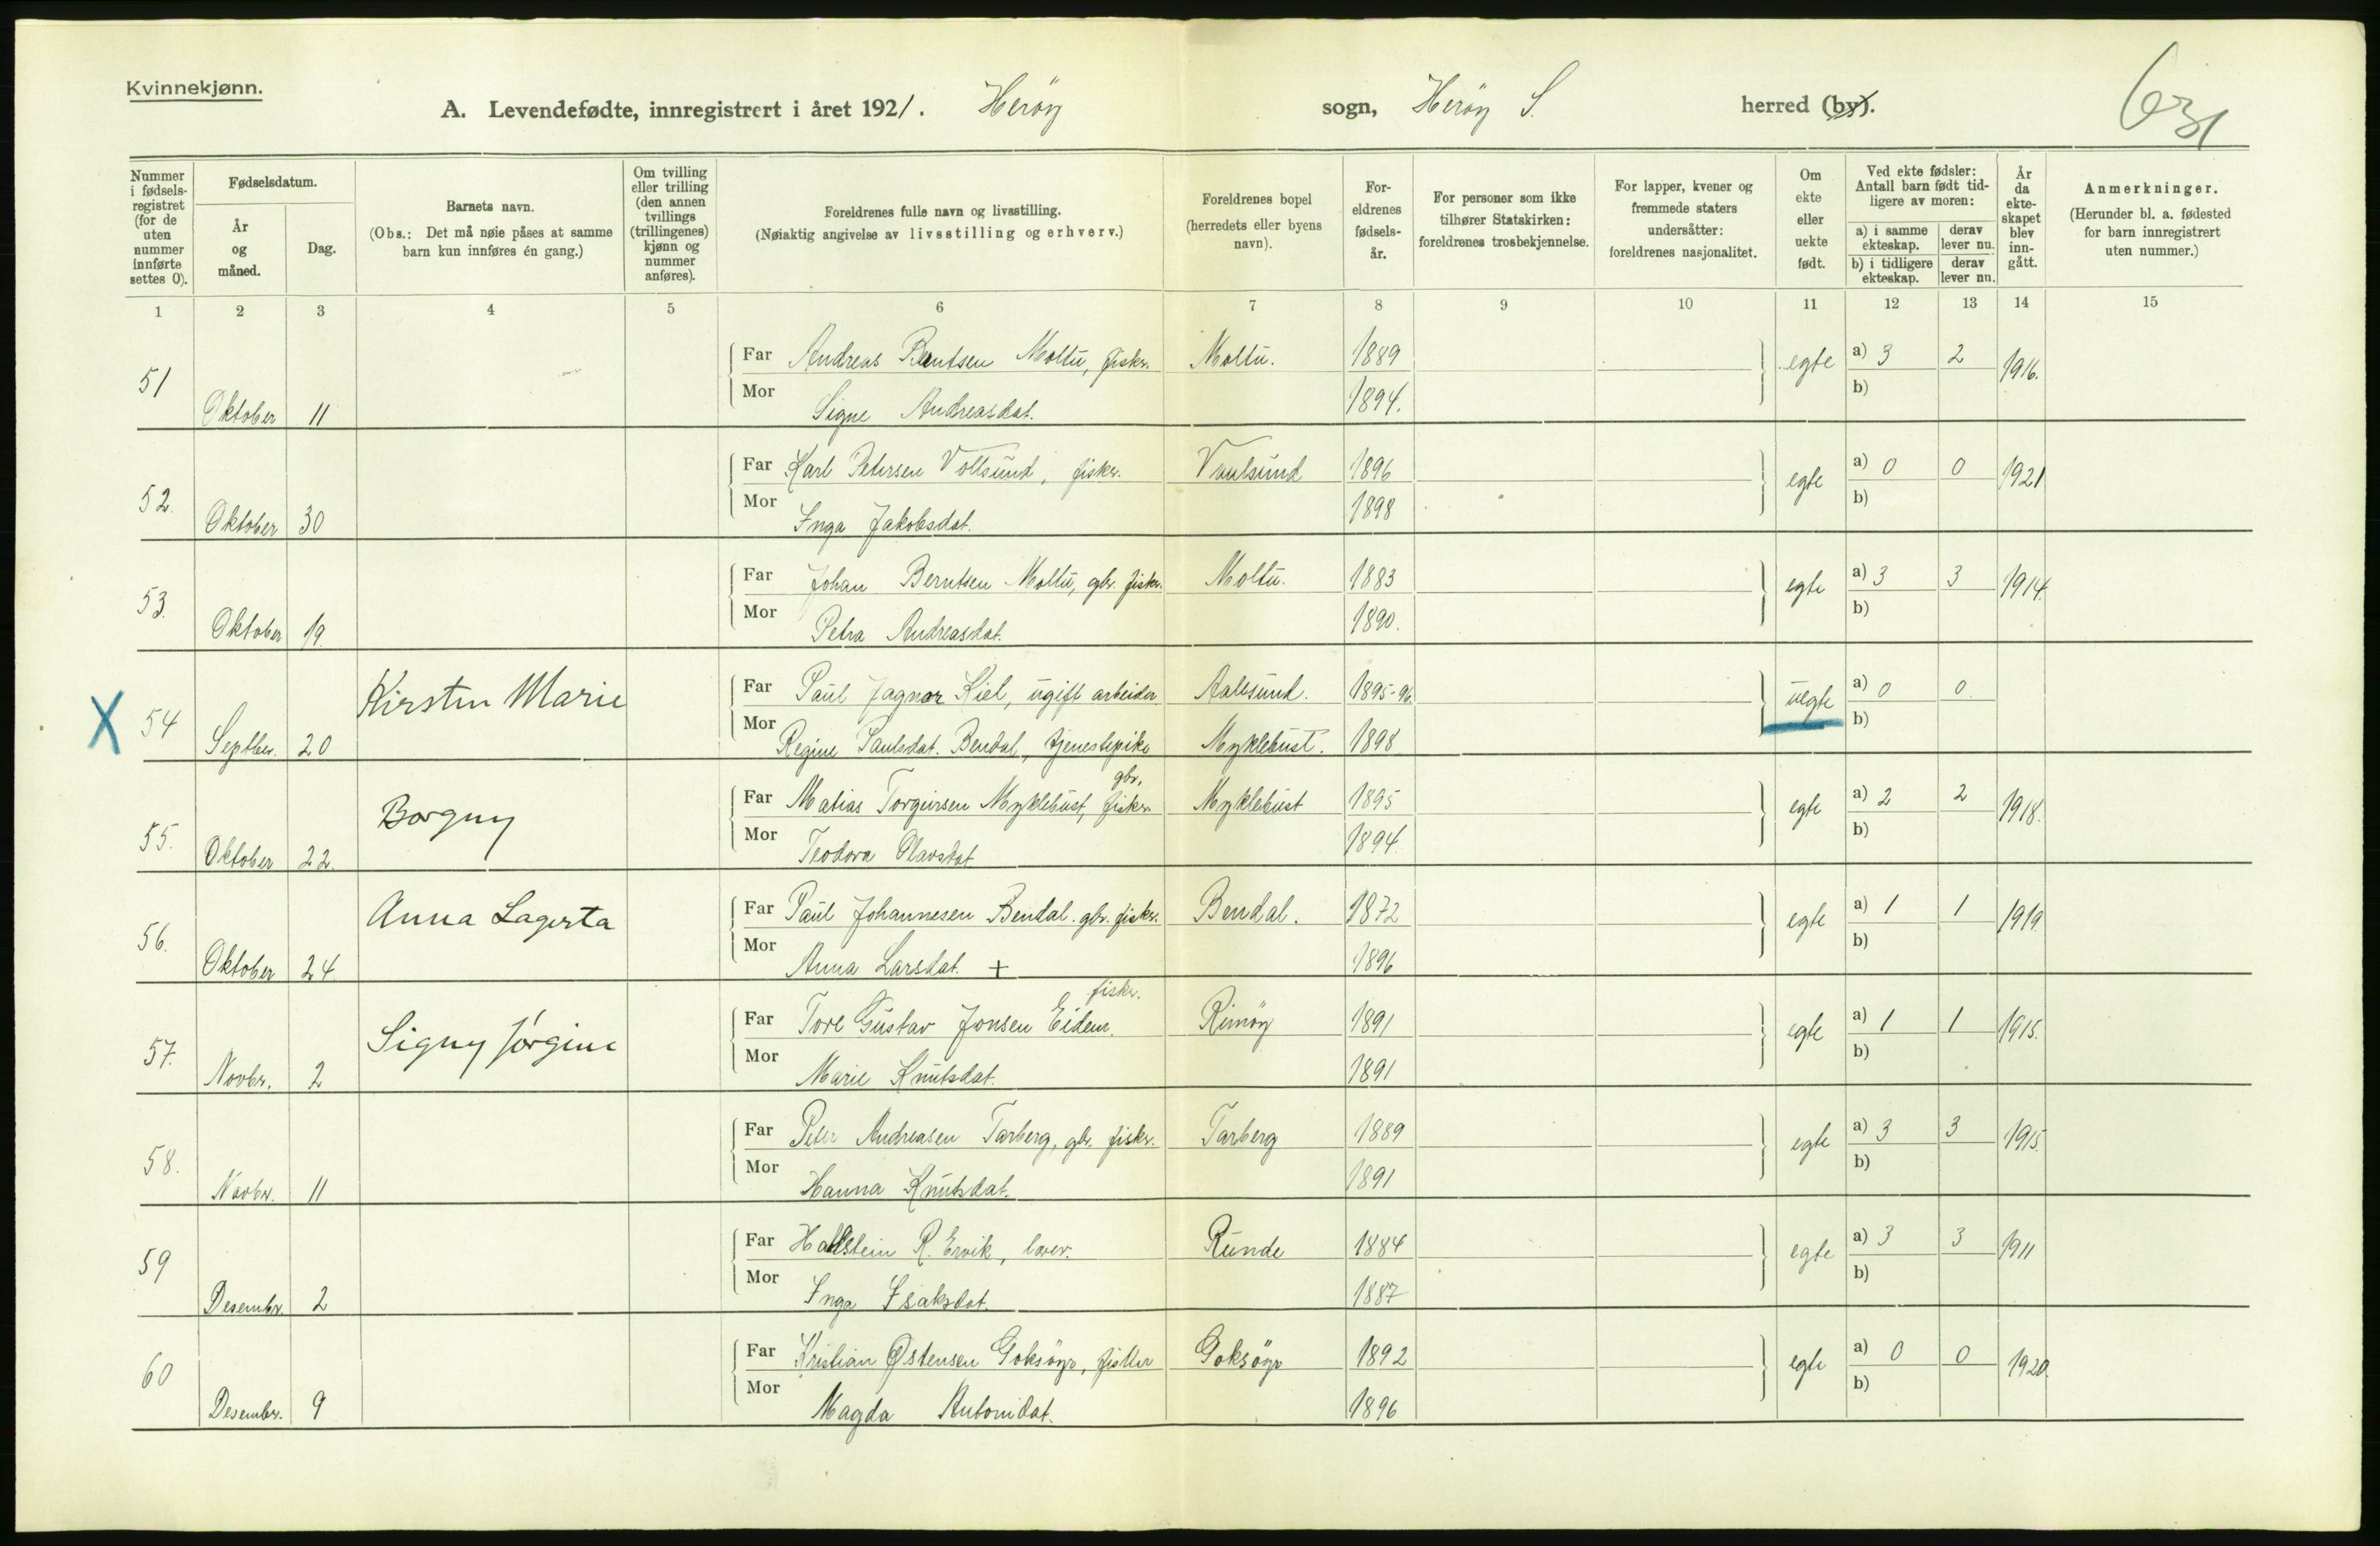 Kvinnekjønn.
A. Levendefødte, innregistrert i året 1921. Heröy sogn, Heröy S. herred (by).
Nummer i fødsels-registret (for de uten nummer innførte settes 0).
Fødselsdatum.
År og måned.
Dag.
Barnets navn.
(Obs.: Det må nøie påses at samme barn kun innføres én gang.)
Om tvilling eller trilling (den annen tvillings (trillingenes) kjønn og nummer anføres).
Foreldrenes fulle navn og livsstilling.
(Nøiaktig angivelse av livsstilling og erhverv.)
Foreldrenes bopel (herredets eller byens navn).
For-eldrenes fødsels-år.
For personer som ikke tilhører Statskirken: foreldrenes trosbekjennelse.
For lapper, kvener og fremmede staters undersåtter: foreldrenes nasjonalitet.
Om ekte eller uekte født.
Ved ekte fødsler: Antall barn født tid-ligere av moren:
a) i samme ekteskap. derav lever nu.
b) i tidligere ekteskap. derav lever nu.
År da ekte-skapet blev inn-gått.
Anmerkninger.
(Herunder bl. a. fødested for barn innregistrert uten nummer.)
1 2 3 4 5 6 7 8 9 10 11 12 13 14 15
Far Andreas Bentsen Moltu, fisker. Moltu. 1889 egte a) 3 2 1916.
51 Oktober 11 Mor Signe Andreasdat. 1894. b)
Far Karl Petersen Voltsund, fisker. 1896 egte a) 0 0 1921
52. Oktober 30 Mor Inga Jakobsdat. 1898 b)
Far Johan Berntsen Moltu, gbr. fisker. Moltu. 1883 egte a) 3 3 1914.
53. Oktober 19. Mor Petra Andreasdat. 1890. b)
X 54 Kirsten Marie Far Paul Ragnar Kiel, ugift arbeider Aalesund. 1895-96. uegte a) 0 0
Septber. 20 Mor Regine Paulsdat. Bendal, tjenestepike Myklebust. 1898 b)
gbr.
Borgny Far Matias Torgeirsen Myklebust, fisker Myklebust 1895 egte a) 2 2 1918.
55. Oktober 22. Mor Teodora Olavsdat 1894. b)
Anna Lagerta Far Paul Johannesen Bendal. gbr. fisker. Bendal. 1872 egte a) 1 1 1919
56. Oktober 24. Mor Anna Larsdat. + 1896 b)
fisker.
Signy Jørgine Far Tore Gustav Jonsen Eidem. Rimöy 1891 egte a) 1 1 1915.
57. Novbr. 2 Mor Marie Knutsdat. 1891 b)
Far Peter Andreasen Tarberg, gbr. fisker. Tarberg 1889 egte a) 3 3 1915.
58. Novbr. 11 Mor Hanna Knutsdat. 1891 b)
Far Hallstein R. Ervik, lærer. Runde 1884 egte a) 3 3 1911
59 Desembr. 2 Mor Inga Isaksdat. 1887 b)
Far Kristian Østensen Goksöyr, fisker Goksöyr 1892 egte a) 0 0 1920.
60 Desember. 9 Mor Magda Antonidat. 1896 b)